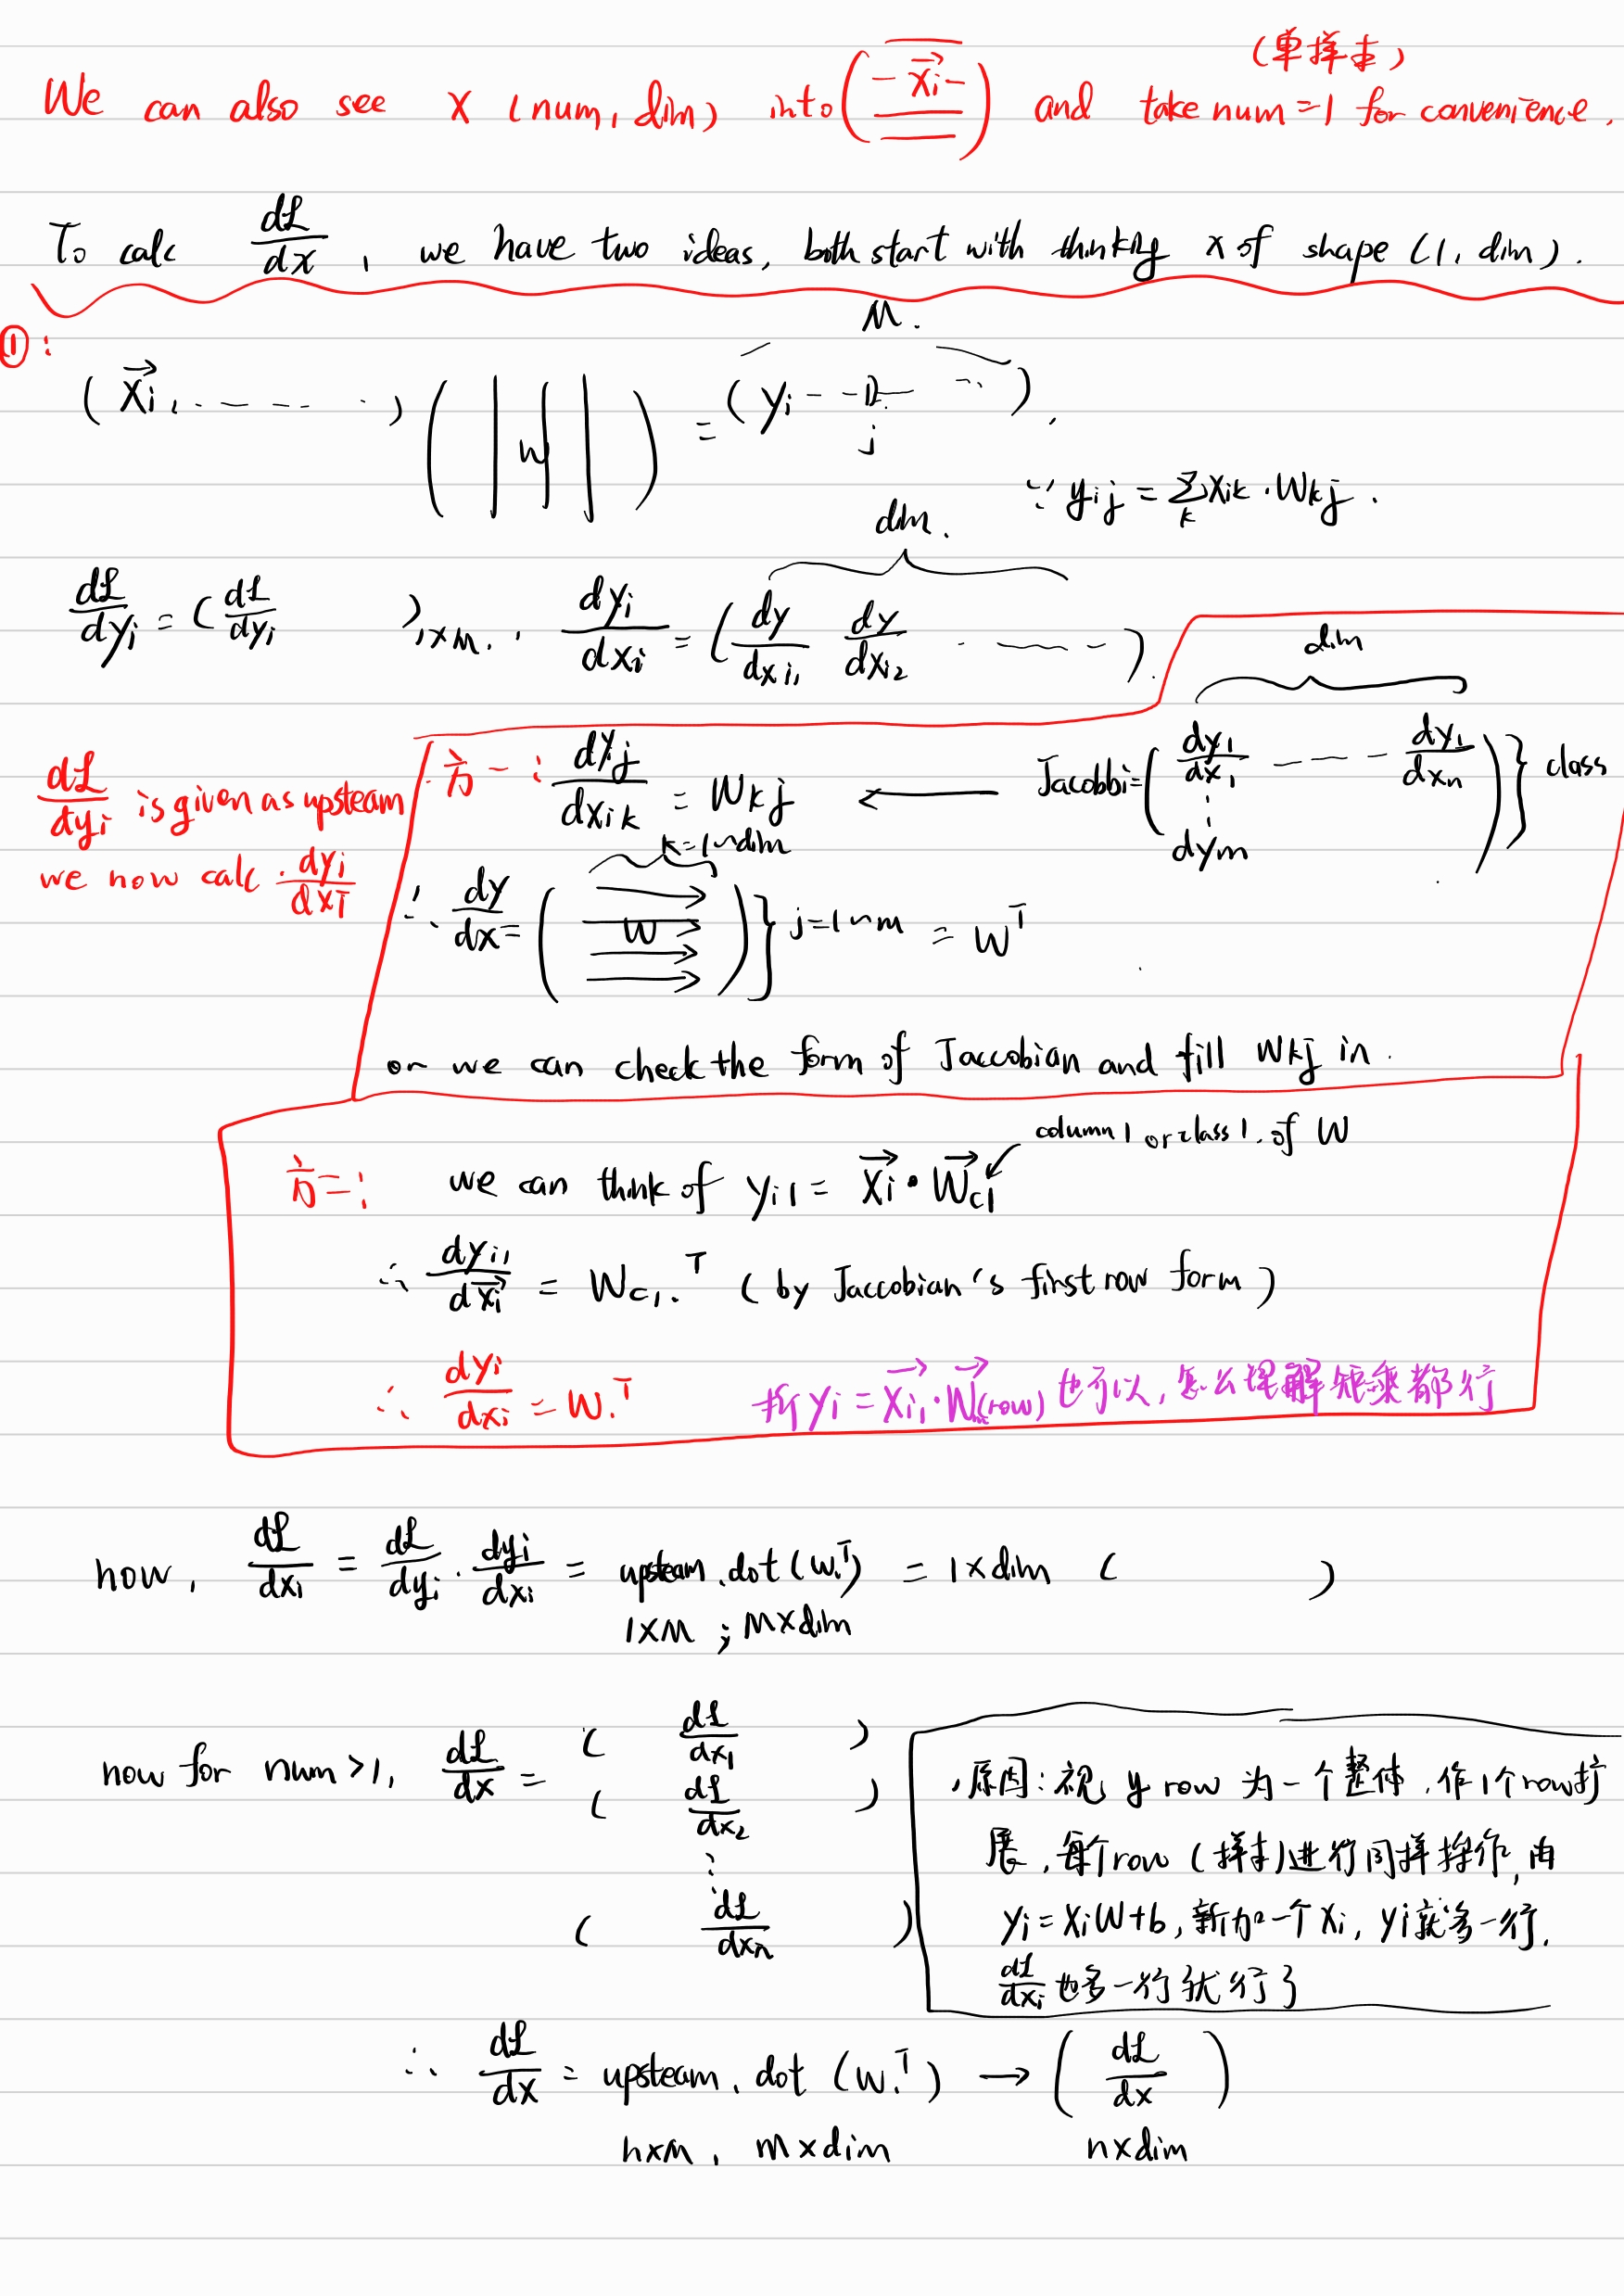 (单样本)
We can also see X (num, dim) into ( — x⃗i — ) and take num=1 for convenience.
To calc dL/dx , we have two ideas, both start with thinking x of shape (1, dim).
①:
M.
( x⃗i, - - - - ) ( | W | ) = ( yi - - - - )
j
∵ yij = Σk xik · Wkj .
dim.
dL/dyi = ( dL/dyi )1×M. , dyi/dxi = ( dy/dxi1 dy/dxi2 - - - - ).
dL/dyi is given as upsteam
we now calc . dyi/dxi
方一: dyj/dxik = Wkj ← Jacobbi = ( dy1/dx1 - - - dy1/dxn ⋮ dym ) } class
dim
k=1~dim
∴ dy/dx = ( W ) } j=1~m = W^T
or we can check the form of Jaccobian and fill Wkj in.
column 1 or class 1. of W
方二: we can think of yi1 = x⃗i · W⃗c1
∴ dyi1/dx⃗i = Wc1.^T ( by Jaccobian's first row form )
∴ dyi/dxi = W.^T
拆 yi = x⃗i1 · W⃗(row) 也可以, 怎么理解矩乘都行
now, dL/dxi = dL/dyi · dyi/dxi = upsteam.dot(W.T) = 1×dim ( )
1×M ; M×dim
now for num>1, dL/dx = ( dL/dx1 )
( dL/dx2 )
⋮
( dL/dxn )
原因: 视 y row 为一个整体, 作1个row扩
展, 每个row (样本)进行同样操作, 由
yi = xiW+b, 新加一个xi, yi就多一行,
dL/dxi 也多一行就行了
∴ dL/dx = upsteam.dot (W.T) → ( dL/dx )
n×m , m×dim n×dim